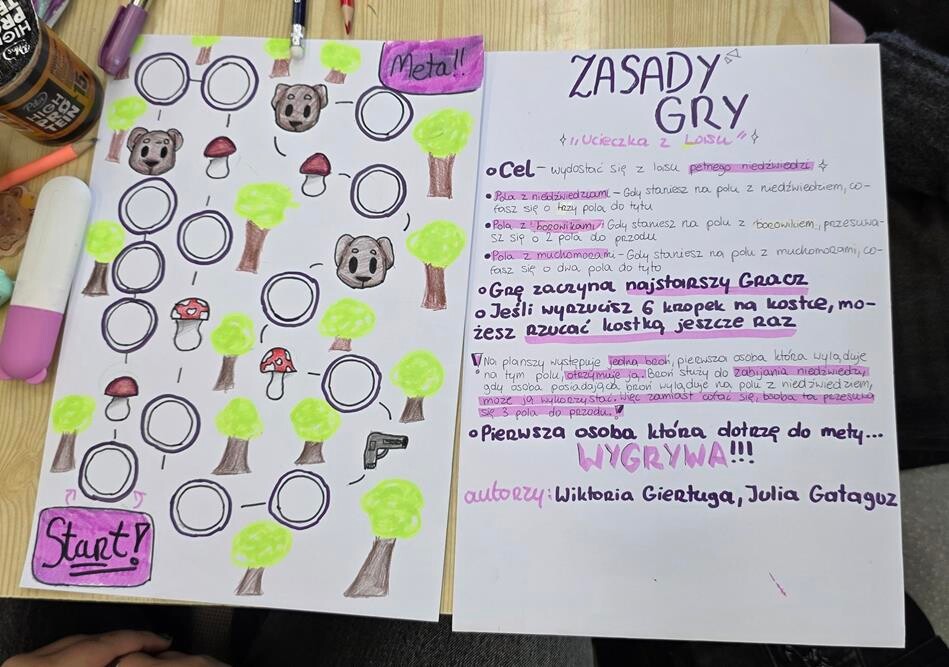 HIGH
PROTEIN
15
Meta!!
Start!
ZASADY
GRY
"Ucieczka z Lasu"
Cel - wydostać się z lasu pełnego niedźwiedzi
Pola z niedźwiedziami - Gdy staniesz na polu z niedźwiedziem, co-
fasz się o trzy pola do tyłu
Pola z borowikami - Gdy staniesz na polu z borowikiem, przesuwa-
sz się o 2 pola do przodu
Pola z muchomorami - Gdy staniesz na polu z muchomorami, co-
fasz się o dwa pola do tyłu
Grę zaczyna najstarszy Gracz
Jeśli wyrzucisz 6 kropek na kostce, mo-
żesz rzucać kostką jeszcze raz
! Na planszy występuje jedna broń, pierwsza osoba która wyląduje
na tym polu, otrzymuje ją. Broń służy do zabijania niedźwiedzy,
gdy osoba posiadająca broń wyląduje na polu z niedźwiedziem,
może ją wykorzystać. Więc zamiast cofać się, osoba ta przesuwa
się 3 pola do przodu.!
Pierwsza osoba która dotrzę do mety...
WYGRYWA!!!
autorzy: Wiktoria Gierługa, Julia Gałaguz